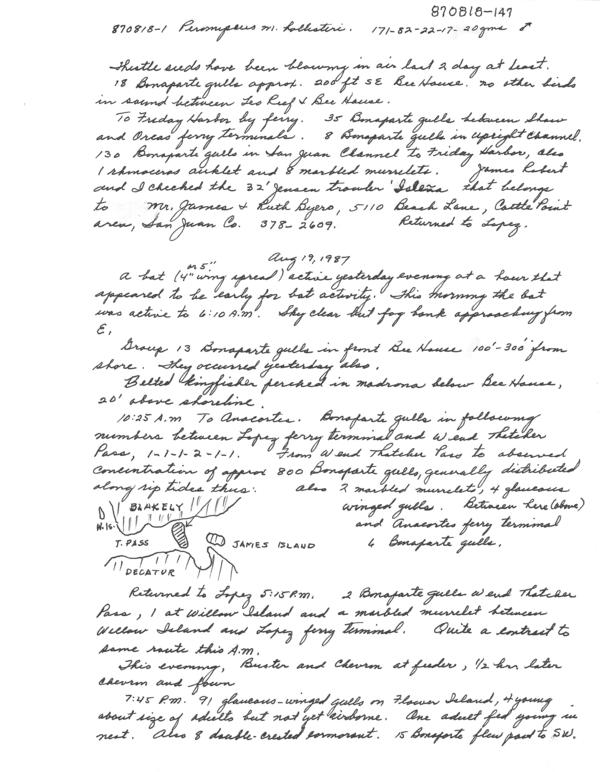 870818-147
870818-1 Peromyscus m. hollisteri. 171-82-22-17-20gms ♂
Thistle seeds have been blowing in air last 2 day at least.
18 Bonaparte gulls approx. 200 ft SE Bee House. no other birds
in sound between Leo Reef & Bee House.
To Friday Harbor by ferry. 35 Bonaparte gulls between Shaw
and Orcas ferry terminals. 8 Bonaparte gulls in Upright Channel.
130 Bonaparte gulls in San Juan Channel to Friday Harbor, also
1 rhinoceros auklet and 8 marbled murrelets. James Robert
and I checked the 32' Jensen trawler 'Isleza' that belongs
to Mr. James & Ruth Byers, 5110 Beach Lane, Cattle Point
area, San Juan Co. 378-2609. Returned to Lopez.
Aug 19, 1987
or 5"
A bat (4" wing spread) active yesterday evening at a hour that
appeared to be early for bat activity. This morning the bat
was active to 6:10 A.M. Sky clear but fog bank approaching from
E.
Group 13 Bonaparte gulls in front Bee House 100'-300' from
shore. They occurred yesterday also.
Belted kingfisher perched in madrona below Bee House,
20' above shoreline.
10:25 A.M. To Anacortes. Bonaparte gulls in following
numbers between Lopez ferry terminal and W end Thatcher
Pass, 1-1-1-2-1-1. From W end Thatcher Pass to observed
concentration of approx 800 Bonaparte gulls, generally distributed
along rip tides thus: also 2 marbled murrelets, 4 glaucous
winged gulls. Between here (above)
and Anacortes ferry terminal
6 Bonaparte gulls.
BLAKELY
W. Is.
T. PASS
JAMES ISLAND
DECATUR
Returned to Lopez 5:15 P.M. 2 Bonaparte gulls W end Thatcher
Pass, 1 at Willow Island and a marbled murrelet between
Willow Island and Lopez ferry terminal. Quite a contrast to
same route this A.M.
This evening, Buster and Chevron at feeder, 1/2 hr. later
chevron and fawn
7:45 P.M. 91 glaucous-winged gulls on Flower Island, 4 young
about size of adults but not yet airborne. One adult fed young in
nest. Also 8 double-crested cormorant. 15 Bonaparte flew past to SW.